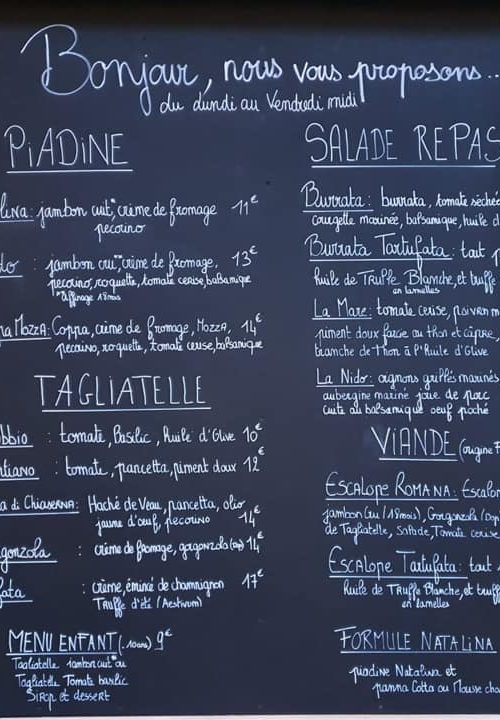 Bonjour, nous vous proposons...
du Lundi au Vendredi midi
PIADINE
lina: jambon cuit, crème de fromage 11€
pecorino
do : jambon cru*, crème de fromage, 13€
pecorino, roquette, tomate cerise, balsamique
*affinage 18mois
na MOZZA: Coppa, crème de fromage, MOZZA, 14€
pecorino, roquette, tomate cerise, balsamique
TAGLIATELLE
bbio : tomate, Basilic, Huile d'Olive 10€
ntiano : tomate, pancetta, piment doux 12€
a di CHIASERNA: Haché de Veau, pancetta, olio
jaune d'oeuf, pecorino 14€
gonzola : crème de fromage, gorgonzola 14€
fata : crème, émincé de champignon 17€
TRUFFE d'été (Aestivum)
MENU ENFANT (-10ans) 9€
Tagliatelle jambon cuit ou
Tagliatelle Tomate basilic
SIROP et dessert
SALADE REPAS
Burrata: burrata, tomate séchée
courgette marinée, balsamique, huile d
Burrata Tartufata: tout
huile de TRUFFE Blanche, et truffe
en lamelles
La Mare: tomate cerise, poivron m
piment doux farcie au thon et câpre,
tranche de Thon à l'Huile d'Olive
La Nido: oignons grillés marinés
aubergine marine joue de porc
cuite au balsamique oeuf poché
VIANDE (origine F
ESCALOPE ROMANA: Escalop
jambon cru (18mois), Gorgonzola
de Tagliatelle, Salade, Tomate cerise
Escalope Tartufata: tout
huile de TRUFFE Blanche, et truff
en lamelles
FORMULE NATALINA
piadine Natalina et
panna Cotta ou Mousse cho